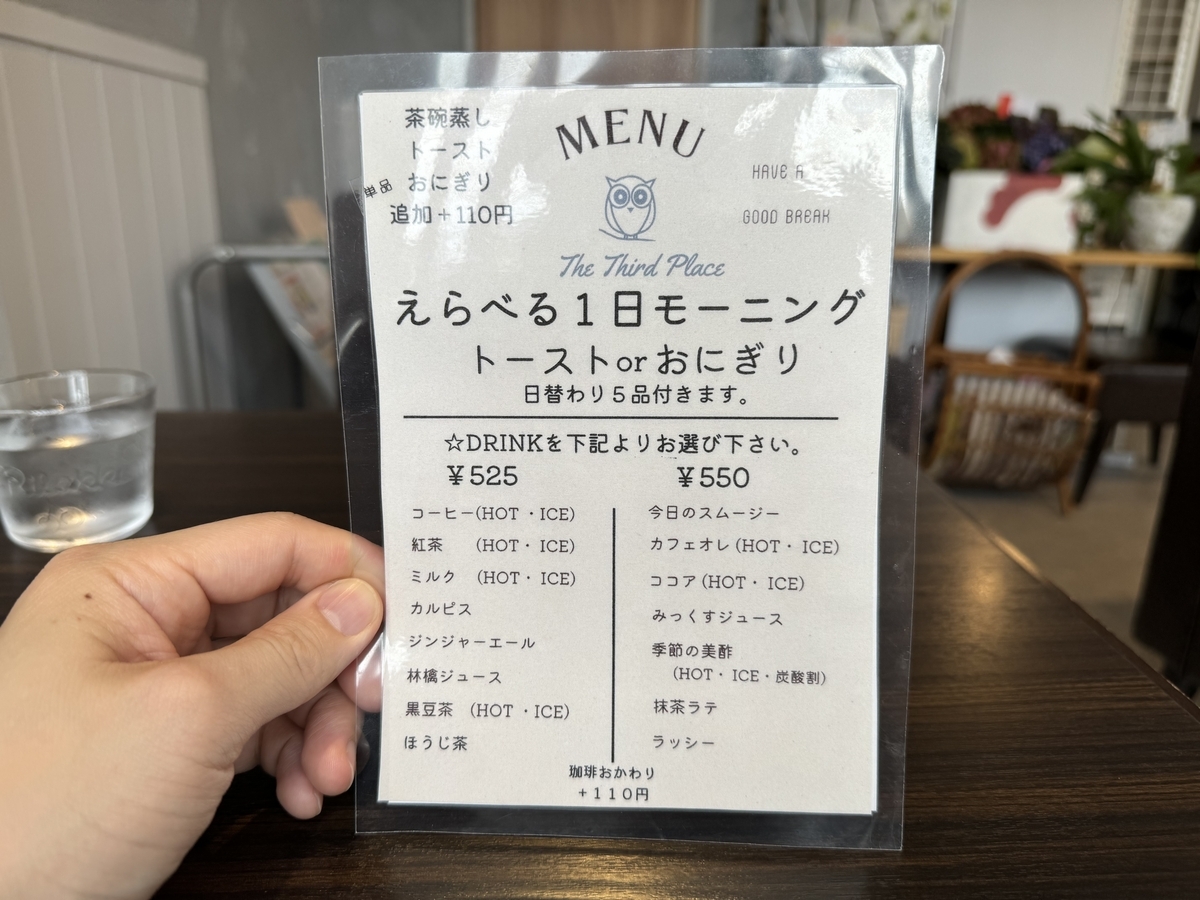 茶碗蒸し
トースト
おにぎり
単品
追加+110円
MENU
HAVE A
GOOD BREAK
The Third Place
えらべる1日モーニング
トーストorおにぎり
日替わり5品付きます。
☆DRINKを下記よりお選び下さい。
¥525
コーヒー(HOT・ICE)
紅茶 (HOT・ICE)
ミルク (HOT・ICE)
カルピス
ジンジャーエール
林檎ジュース
黒豆茶 (HOT・ICE)
ほうじ茶
¥550
今日のスムージー
カフェオレ(HOT・ICE)
ココア(HOT・ICE)
みっくすジュース
季節の美酢
(HOT・ICE・炭酸割)
抹茶ラテ
ラッシー
珈琲おかわり
+110円